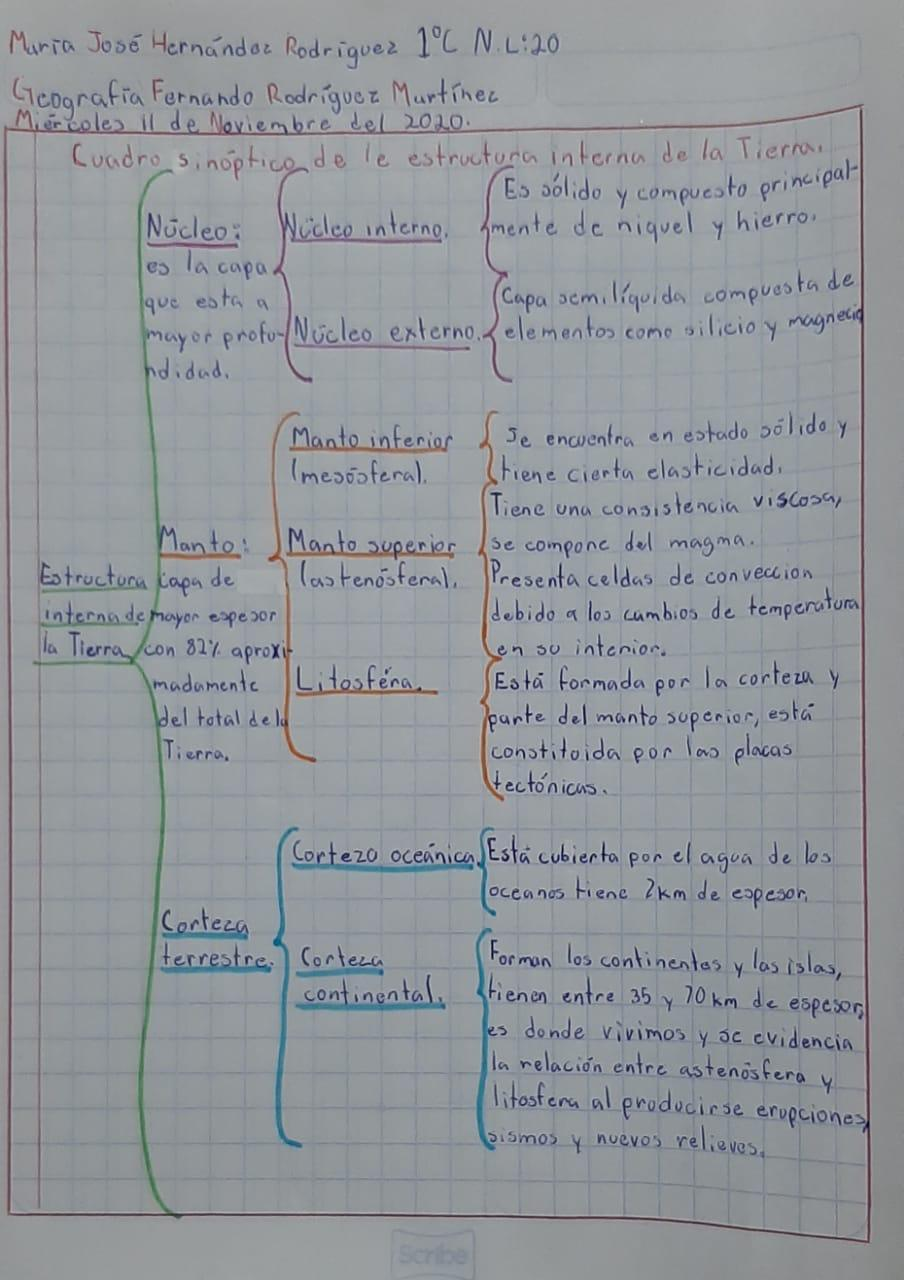 María José Hernández Rodríguez 1°C N.L:20
Geografía Fernando Rodríguez Martínez
Miércoles 11 de Noviembre del 2020.
Cuadro sinóptico de le estructura interna de la Tierra.
Estructura
interna de
la Tierra
Núcleo:
es la capa
que esta a
mayor profu-
ndidad.
Núcleo interno.
Es sólido y compuesto principal-
mente de niquel y hierro.
Núcleo externo.
Capa semilíquida compuesta de
elementos como silicio y magnecio
Manto:
capa de
mayor espesor
con 82% aproxi-
madamente
del total de la
Tierra.
Manto inferior
(mesósfera).
Se encuentra en estado sólido y
tiene cierta elasticidad.
Manto superior
(astenósfera).
Tiene una consistencia viscosa,
se compone del magma.
Presenta celdas de conveccion
debido a los cambios de temperatura
en su interior.
Litosféra.
Está formada por la corteza y
parte del manto superior, está
constitoida por las placas
tectónicas.
Corteza
terrestre.
Corteza oceánica.
Está cubierta por el agua de los
oceanos tiene 7km de espesor.
Corteza
continental.
Forman los continentes y las islas,
tienen entre 35 y 70 km de espesor,
es donde vivimos y se evidencia
la relación entre astenósfera y
litosfera al producirse erupciones,
sismos y nuevos relieves.
Scribe